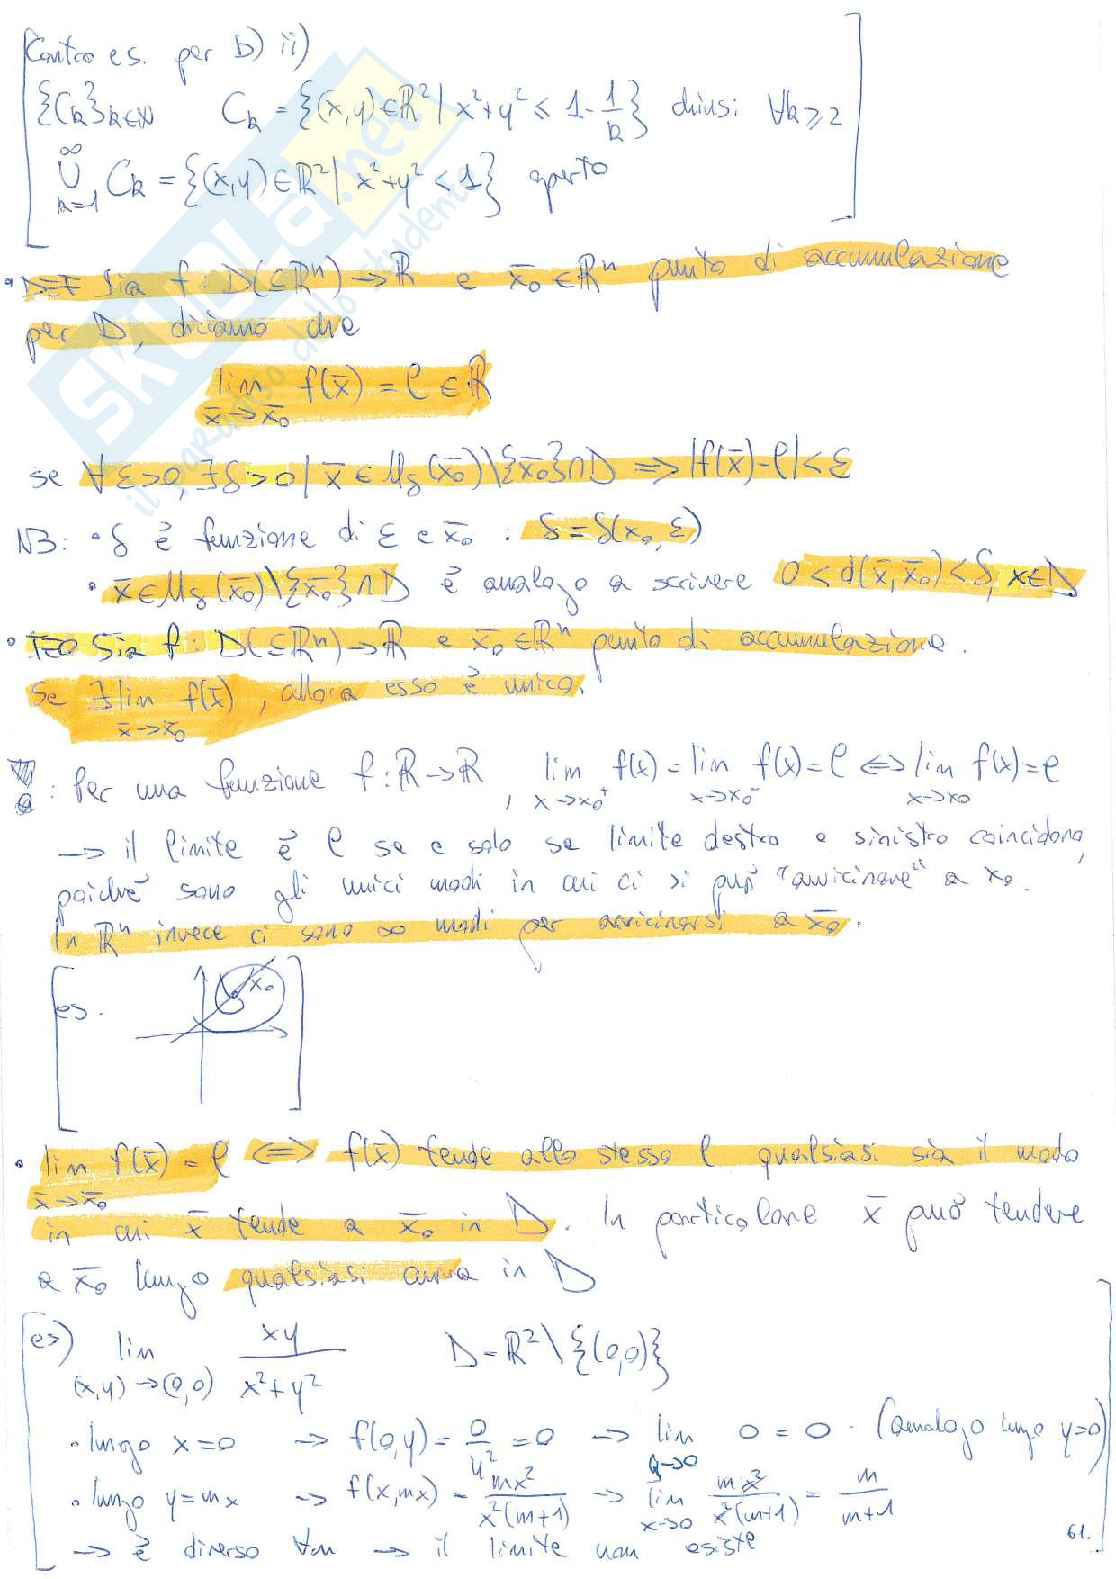 Contro es. per b) ii)
{C_k}_{k∈N} C_k = {(x,y)∈R² | x²+y² ≤ 1-1/k} chiusi ∀k≥2
∞
∪ C_k = {(x,y)∈R² | x²+y² < 1} aperto
k=1
• DEF Sia f: D(⊆Rⁿ)→R e x̄₀∈Rⁿ punto di accumulazione
per D, diciamo che
lim f(x̄) = l ∈ R
x̄→x̄₀
se ∀ε>0, ∃δ>0 | x̄∈U_δ(x̄₀)\{x̄₀}∩D ⇒ |f(x̄)-l|<ε
NB: • δ è funzione di ε e x̄₀ : δ=δ(x₀,ε)
• x̄∈U_δ(x̄₀)\{x̄₀}∩D è analogo a scrivere 0<d(x̄,x̄₀)<δ, x∈D
• TEO Sia f: D(⊆Rⁿ)→R e x̄₀∈Rⁿ punto di accumulazione.
Se ∃ lim f(x̄), allora esso è unico.
x̄→x̄₀
: Per una funzione f: R→R, lim f(x) = lim f(x) = l ⇔ lim f(x) = l
x→x₀⁺ x→x₀⁻ x→x₀
→ il limite è l se e solo se limite destro e sinistro coincidono,
poichè sono gli unici modi in cui ci si può "avvicinare" a x₀.
In Rⁿ invece ci sono ∞ modi per avvicinarsi a x̄₀.
es. x₀
• lim f(x̄) = l ⇔ f(x̄) tende allo stesso l qualsiasi sia il modo
x̄→x̄₀
in cui x̄ tende a x̄₀ in D. In particolare x̄ può tendere
a x̄₀ lungo qualsiasi curva in D
es) lim xy/(x²+y²) D=R²\{(0,0)}
(x,y)→(0,0)
• lungo x=0 → f(0,y) = 0/y² = 0 → lim 0 = 0. (analogo lungo y=0)
y→0
• lungo y=mx → f(x,mx) = mx²/x²(m+1) → lim mx²/x²(m+1) = m/m+1
x→0
→ è diverso ∀m → il limite non esiste
61.
SKUOLA.net
il paradiso dello studente